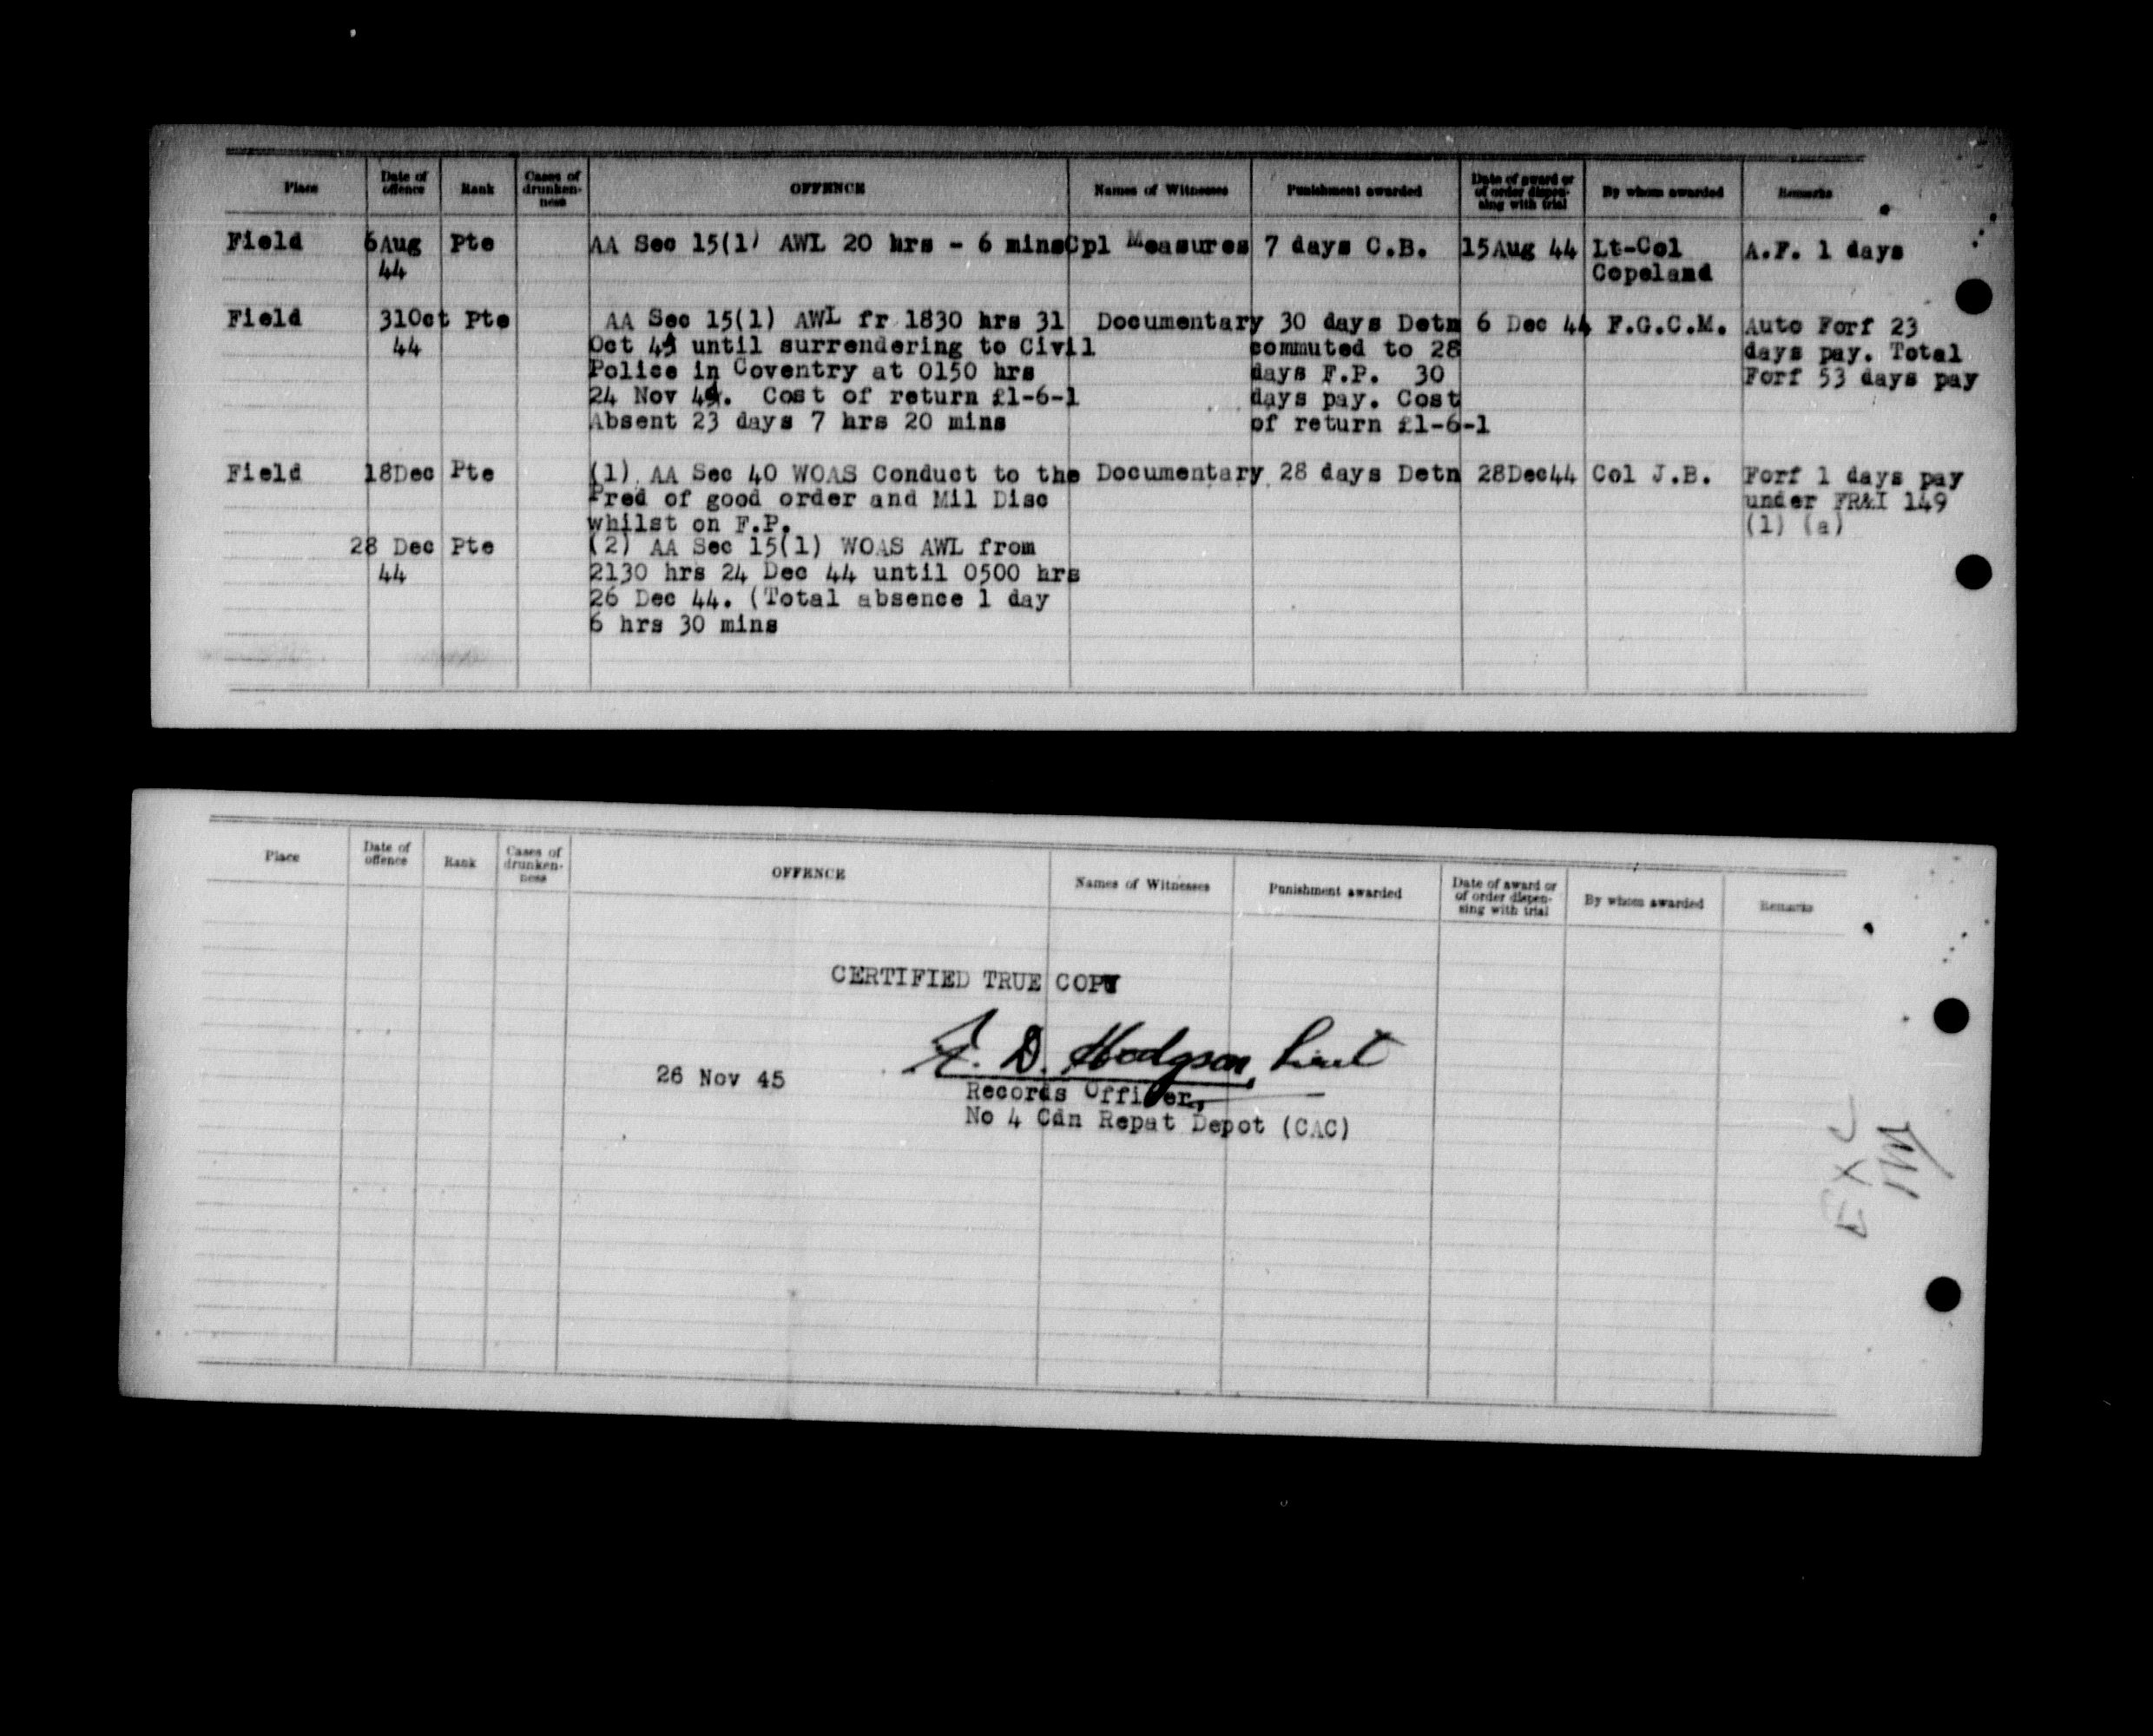 Place | Date of offence | Rank | Cases of drunken-ness | OFFENCE | Names of Witnesses | Punishment awarded | Date of award or of order dispen-sing with trial | By whom awarded | Remarks
Field 6Aug Pte AA Sec 15(1) AWL 20 hrs - 6 mins Cpl Measures 7 days C.B. 15Aug 44 Lt-Col A.F. 1 days
44 Copeland
Field 31Oct Pte AA Sec 15(1) AWL fr 1830 hrs 31 Documentary 30 days Detn 6 Dec 44 F.G.C.M. Auto Forf 23
44 Oct 44 until surrendering to Civil commuted to 28 days pay. Total
Police in Coventry at 0150 hrs days F.P. 30 Forf 53 days pay
24 Nov 44. Cost of return £1-6-1 days pay. Cost
Absent 23 days 7 hrs 20 mins of return £1-6-1
Field 18Dec Pte (1) AA Sec 40 WOAS Conduct to the Documentary 28 days Detn 28Dec44 Col J.B. Forf 1 days pay
Pred of good order and Mil Disc under FR&I 149
whilst on F.P. (1) (a)
28 Dec Pte (2) AA Sec 15(1) WOAS AWL from
44 2130 hrs 24 Dec 44 until 0500 hrs
26 Dec 44. (Total absence 1 day
6 hrs 30 mins
Place | Date of offence | Rank | Cases of drunken-ness | OFFENCE | Names of Witnesses | Punishment awarded | Date of award or of order dispen-sing with trial | By whom awarded | Remarks
CERTIFIED TRUE COPY
D. Hodgson, Lieut
26 Nov 45
Records Officer,
No 4 Cdn Repat Depot (CAC)
EXC